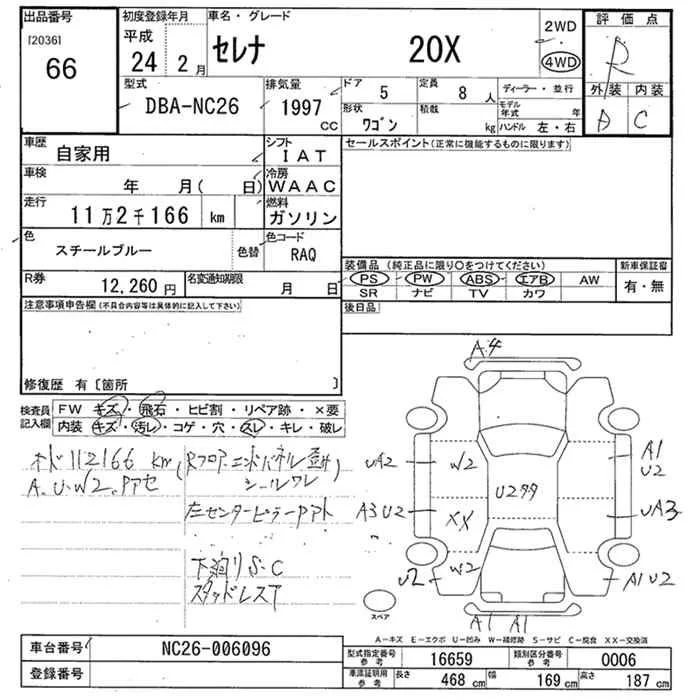 出品番号
[2036]
66
初度登録年月
平成
24 2月
車名・グレード
セレナ 20X
2WD
4WD
評価点
R
外装 内装
A C
型式
DBA-NC26
排気量
1997
CC
ドア
5
定員
8 人
ディーラー・並行
形状
ワゴン
積載
kg
モデル年式 年
ハンドル 左・右
車歴
自家用
シフト
IAT
セールスポイント(正常に機能するものに限ります)
車検
年 月( 日)
冷房
WAAC
走行
11万2千166 km
燃料
ガソリン
色
スチールブルー
色替
色コード
RAQ
R券
12,260 円
名変通知期限
月 日
装備品 (純正品に限り○をつけてください)
新車保証書
PS PW ABS エアB AW
有・無
SR ナビ TV カワ
注意事項申告欄(不具合内容等は具体的に記入して下さい)
後日品
修復歴 有〔箇所 〕
検査員
記入欄
FW キズ・飛石・ヒビ割・リペア跡・×要
内装 キズ・汚レ・コゲ・穴・スレ・キレ・破レ
オド112166 km
シールワレ
A.U.W2.
左センターピラー
下廻りS・C
スタッドレスT
A4
UA2
W2
A1
U2
A3 U2
XX
UA3
U2
W2
A1U2
A1 A1
スペア
A-キズ E-エクボ U-凹み W-補修跡 S-サビ C-腐食 XX-交換済
車台番号
NC26-006096
登録番号
型式指定番号
参考
16659
類別区分番号
参考
0006
車庫証明用
参考
長さ
468 cm
幅
169 cm
高さ
187 cm